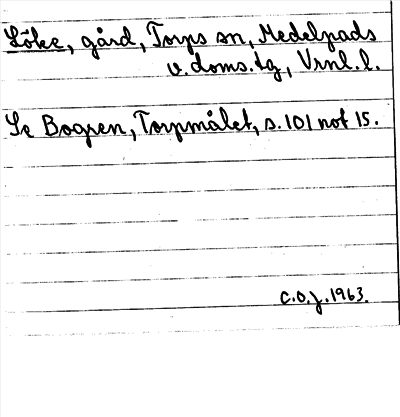 Löke, gård, Torps sn, Medelpads
v. doms.tg, Vrnl. l.
Se Bogren, Torpmålet, s. 101 not 15.
C.O.J. 1963.